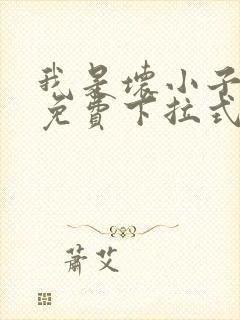 我是壞小子
免費下拉式
蕭艾